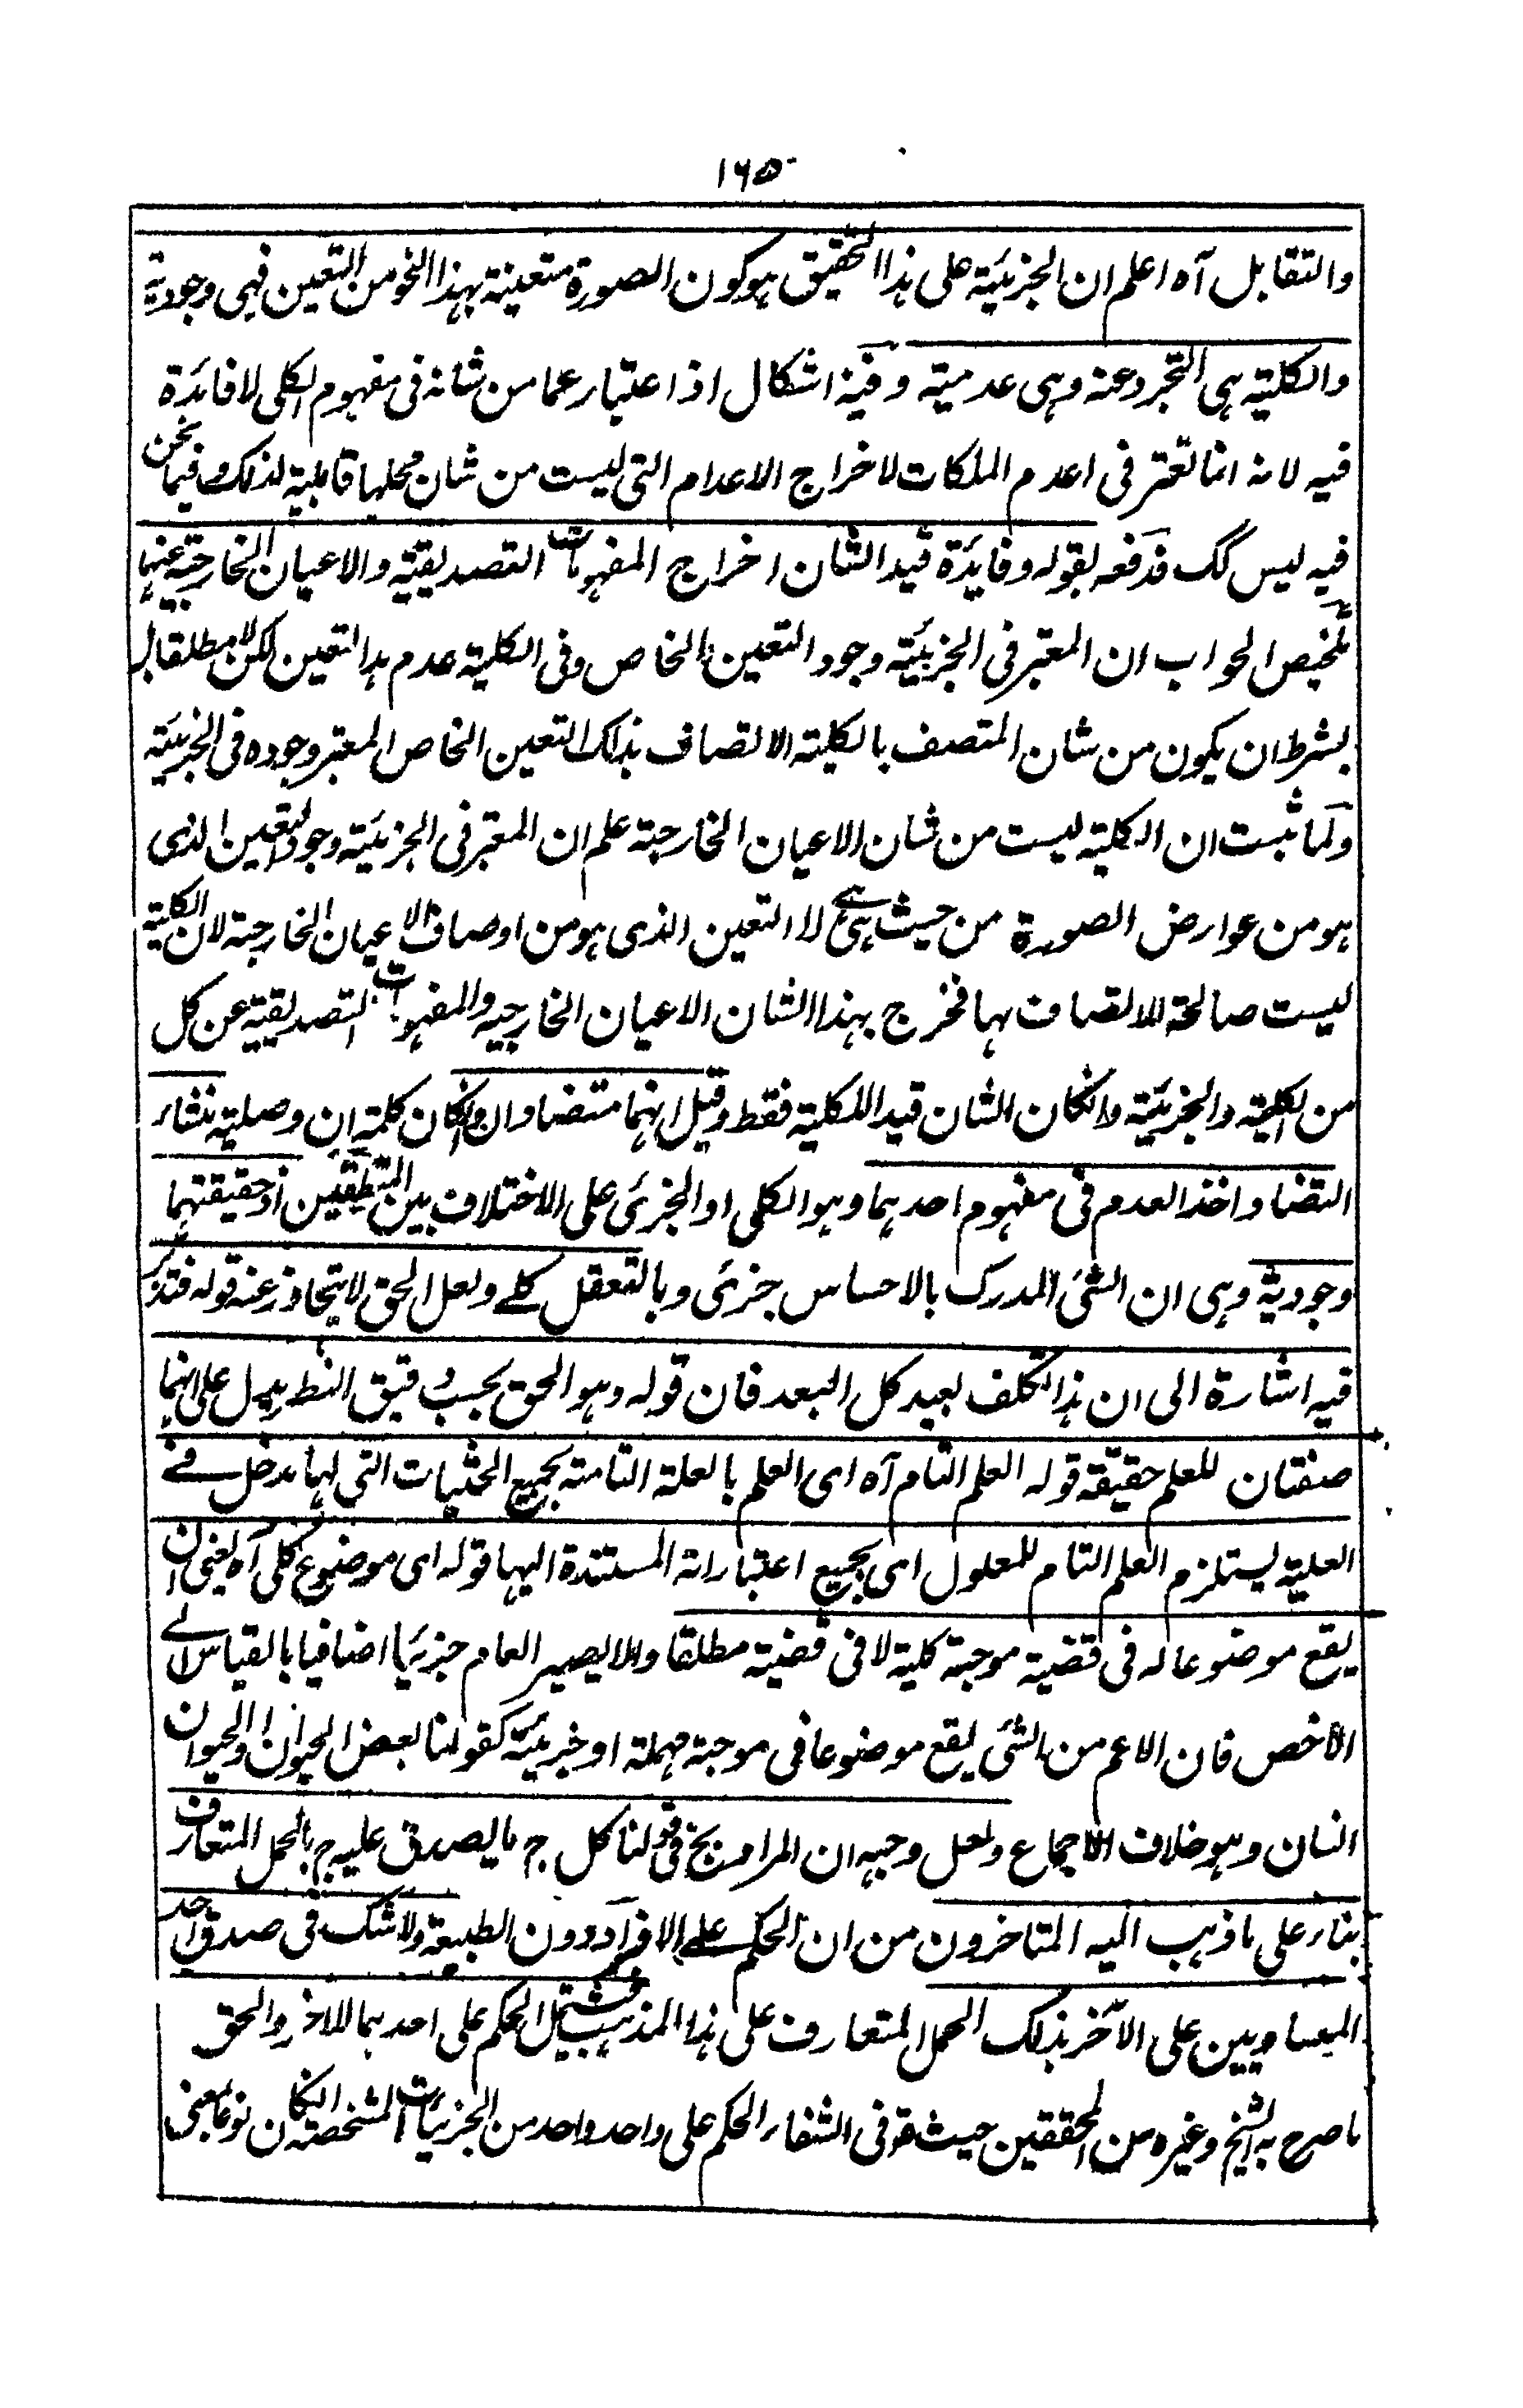 ١٦٥
والتقابل آه اعلم ان الجزئية على هذا التحقيق هو كون الصورة متعينة بهذا النحو من التعين فهى وجودية
والكلية هى التجرد عنه وهى عدمية وفيه اشكال اذ اعتبار عما من شانه فى مفهوم الكلى لا فائدة
فيه لانه انما تعتبر فى اعدم الملكات لاخراج الاعدام التى ليست من شان محلها قابلية لذلك وفيما نحن
فيه ليس كك فدفعه بقوله وفايدة قيد الشان اخراج المفهومات التصديقية والاعيان الخارجية عنها
تلخيص الجواب ان المعتبر فى الجزئية وجود التعين الخاص وفى الكلية عدم هذا التعين لكن لا مطلقا بل
بشرط ان يكون من شان المتصف بالكلية الاتصاف بذلك التعين الخاص المعتبر وجوده فى الجزئية
ولما ثبت ان الكلية ليست من شان الاعيان الخارجية علم ان المعتبر فى الجزئية وجود التعين الذى
هو من عوارض الصورة من حيث هى هى لا التعين الذى هو من اوصاف الاعيان الخارجية لان الكلية
ليست صالحة للاتصاف بها فخرج بهذا الشان الاعيان الخارجيه والمفهومات التصديقية عن كل
من الكلية والجزئية وانكان الشان قيدا للكلية فقط وقيل انهما متضادان وانكان كلمة ان وصلية منشاء
التضاد اخذ العدم فى مفهوم احدهما وهو الكلى او الجزئى على الاختلاف بين المنطقيين اذ حقيقتهما
وجودية وهى ان الشئ المدرك بالاحساس جزئى وبالتعقل كلے ولعل الحق لا يتجاوز عنه قوله فتدبر
فيه اشارة الى ان هذا تكلف بعيد كل البعد فان قوله وهو الحق بحسب دقيق النظر يدل على انهما
صفتان للعلم حقيقة قوله العلم التام آه اى العلم بالعلة التامة بجميع الحيثيات التى لها مدخل فے
العلية يستلزم العلم التام للمعلول اى بجميع اعتباراته المستندة اليها قوله اى موضوع كلى آه يعنى ان
يقع موضوعا له فى قضية موجبة كلية لا فى قضية مطلقا والا يصير العام جزئيا اضافيا بالقياس الے
الاخص فان الاعم من الشئ يقع موضوعا فى موجبة مهملة او جزئية كقولنا بعض الحيوان او الحيوان
انسان وهو خلاف الاجماع ولعل وجهه ان المراد بج فى قولنا كل ج ما يصدق عليه ج بالحمل المتعارف
بناء على ما ذهب اليه المتاخرون من ان الحكم على الافراد دون الطبيعة ولا شك فى صدق احد
المساويين على الآخر بذلك الحمل المتعارف على هذا المذهب فيشتمل الحكم على احدهما للاخر والحق
ما صرح به الشيخ وغيره من المحققين حيث قو فى الشفاء الحكم على واحد واحد من الجزئيات المشخصة انكان نوعا بمعنى